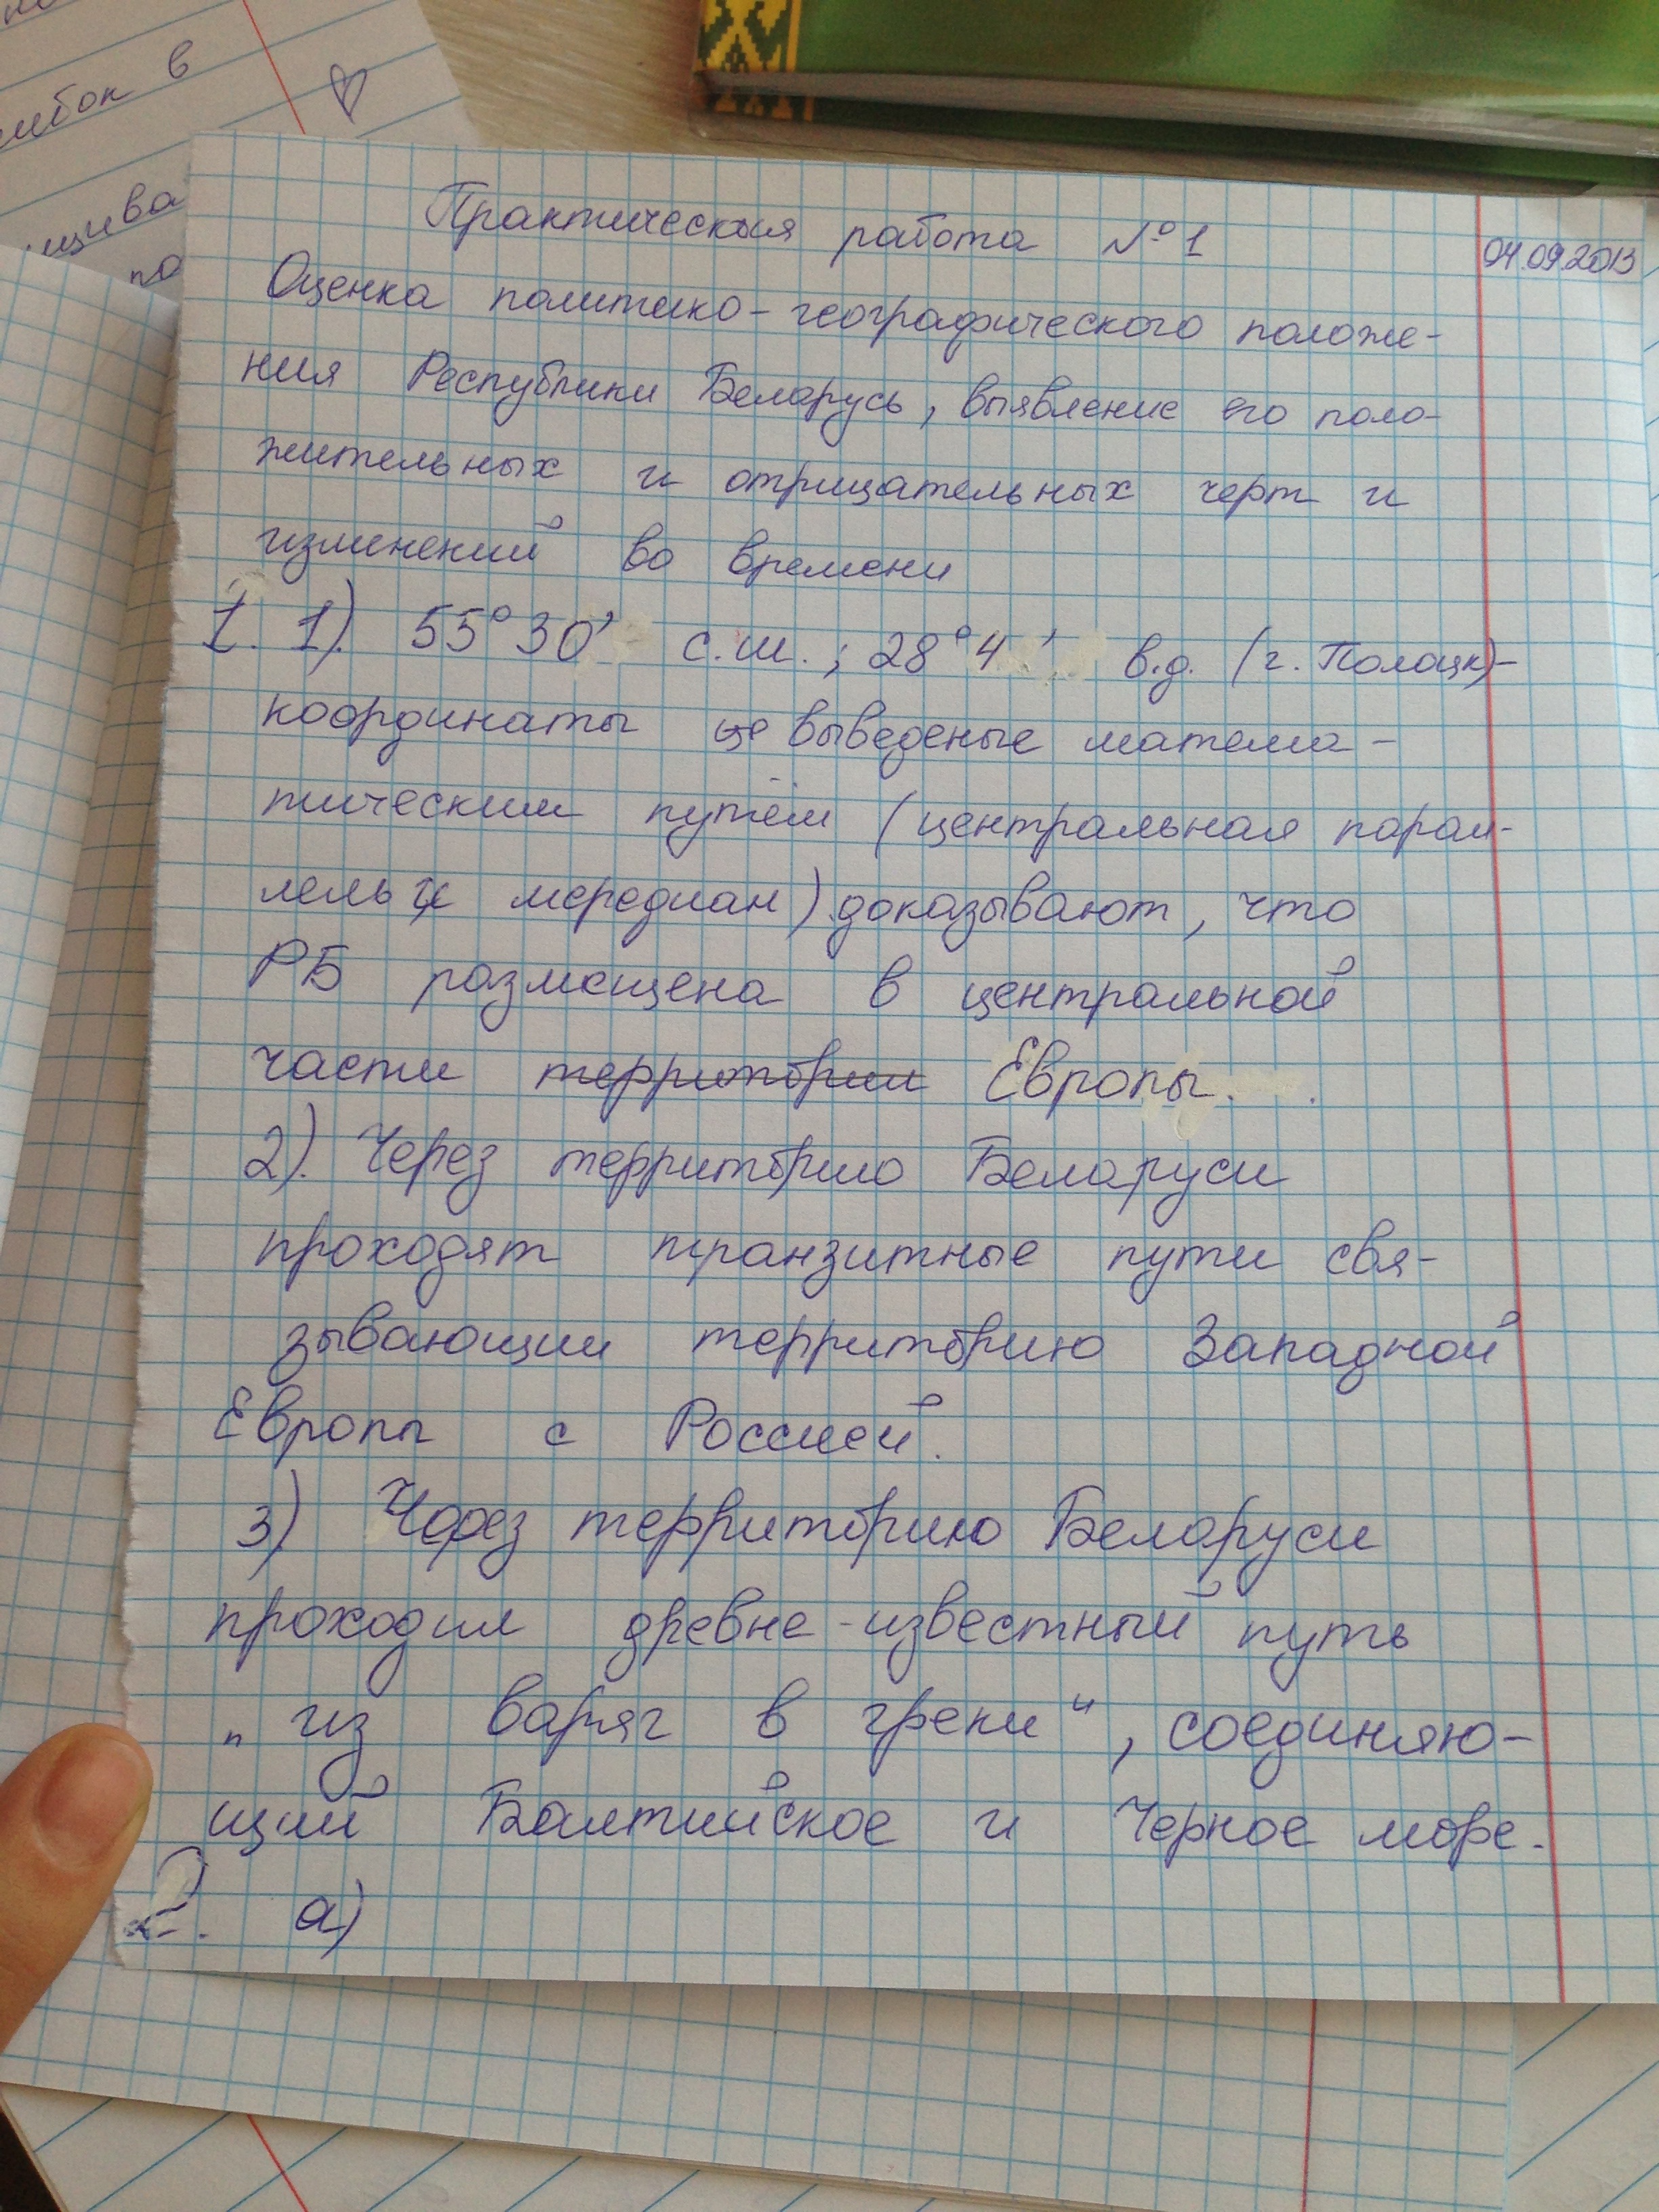 мбок в
щива
по
Практическая работа №1
04.09.2013
Оценка политико-географического положе-
ния Республики Беларусь, выявление его поло-
жительных и отрицательных черт и
изменений во времени
1. 1). 55°30' с.ш.; 28°4' в.д. (г. Полоцк)-
координаты выведеные матема-
тическим путём (центральная парал-
лель и меридиан) доказывают, что
РБ размещена в центральной
части территории Европы.
2). Через территорию Беларуси
проходят транзитные пути свя-
зывающии территорию Западной
Европы с Россией.
3) Через территорию Беларуси
проходил древне-известный путь
„из варяг в греки“, соединяю-
щий Балтийское и Черное море.
2. а)